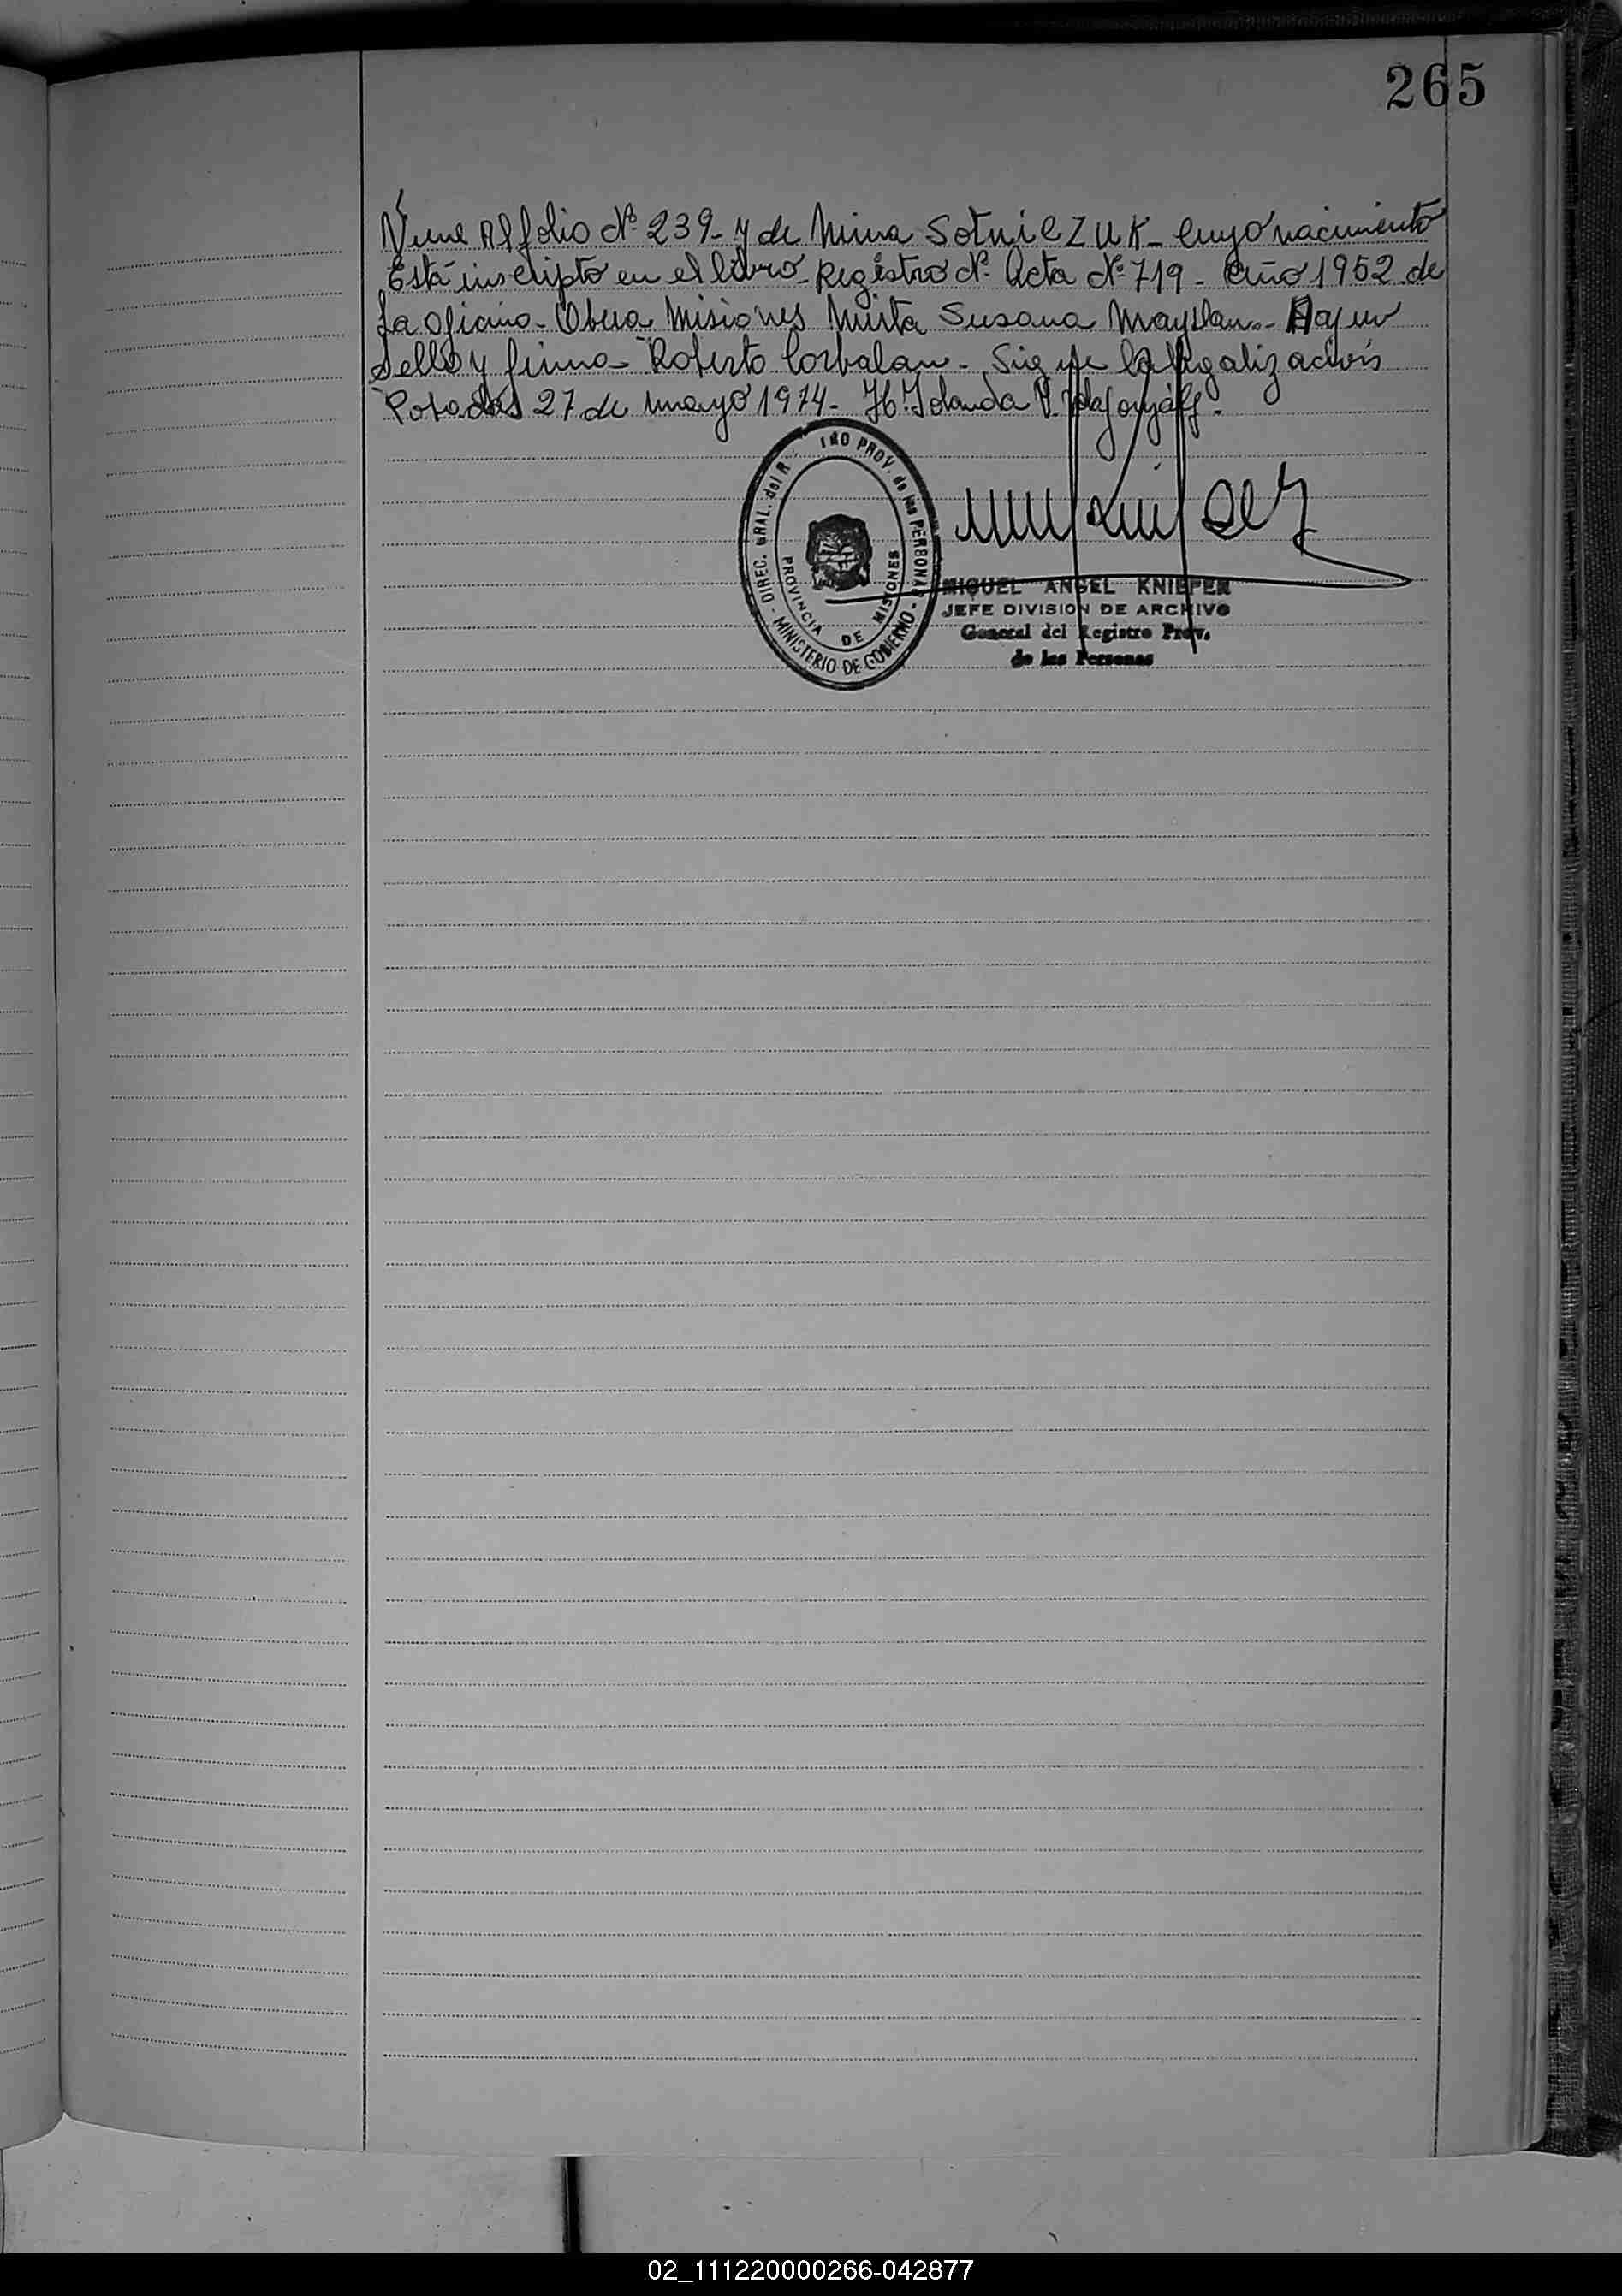 265
Viene Al folio Nº 239- y de Nina Sotnilczuk- Cuyo nacimiento
Está inscripto en el libro- Registro Nº Acta Nº 719- Año 1952 de
La oficina- Obera Misiones Mirta Susana - Hay un
Sello y firma- Roberto Corbalan- Sigue la legalización
Posadas 27 de mayo 1974- Yolanda
DIREC. GRAL. del R PROV. de las PERSONAS - MINISTERIO DE GOBIERNO -
PROVINCIA DE MISIONES
MIGUEL ANGEL KNIEPER
JEFE DIVISION DE ARCHIVO
General del Registro Prov.
de las Personas
02_111220000266-042877